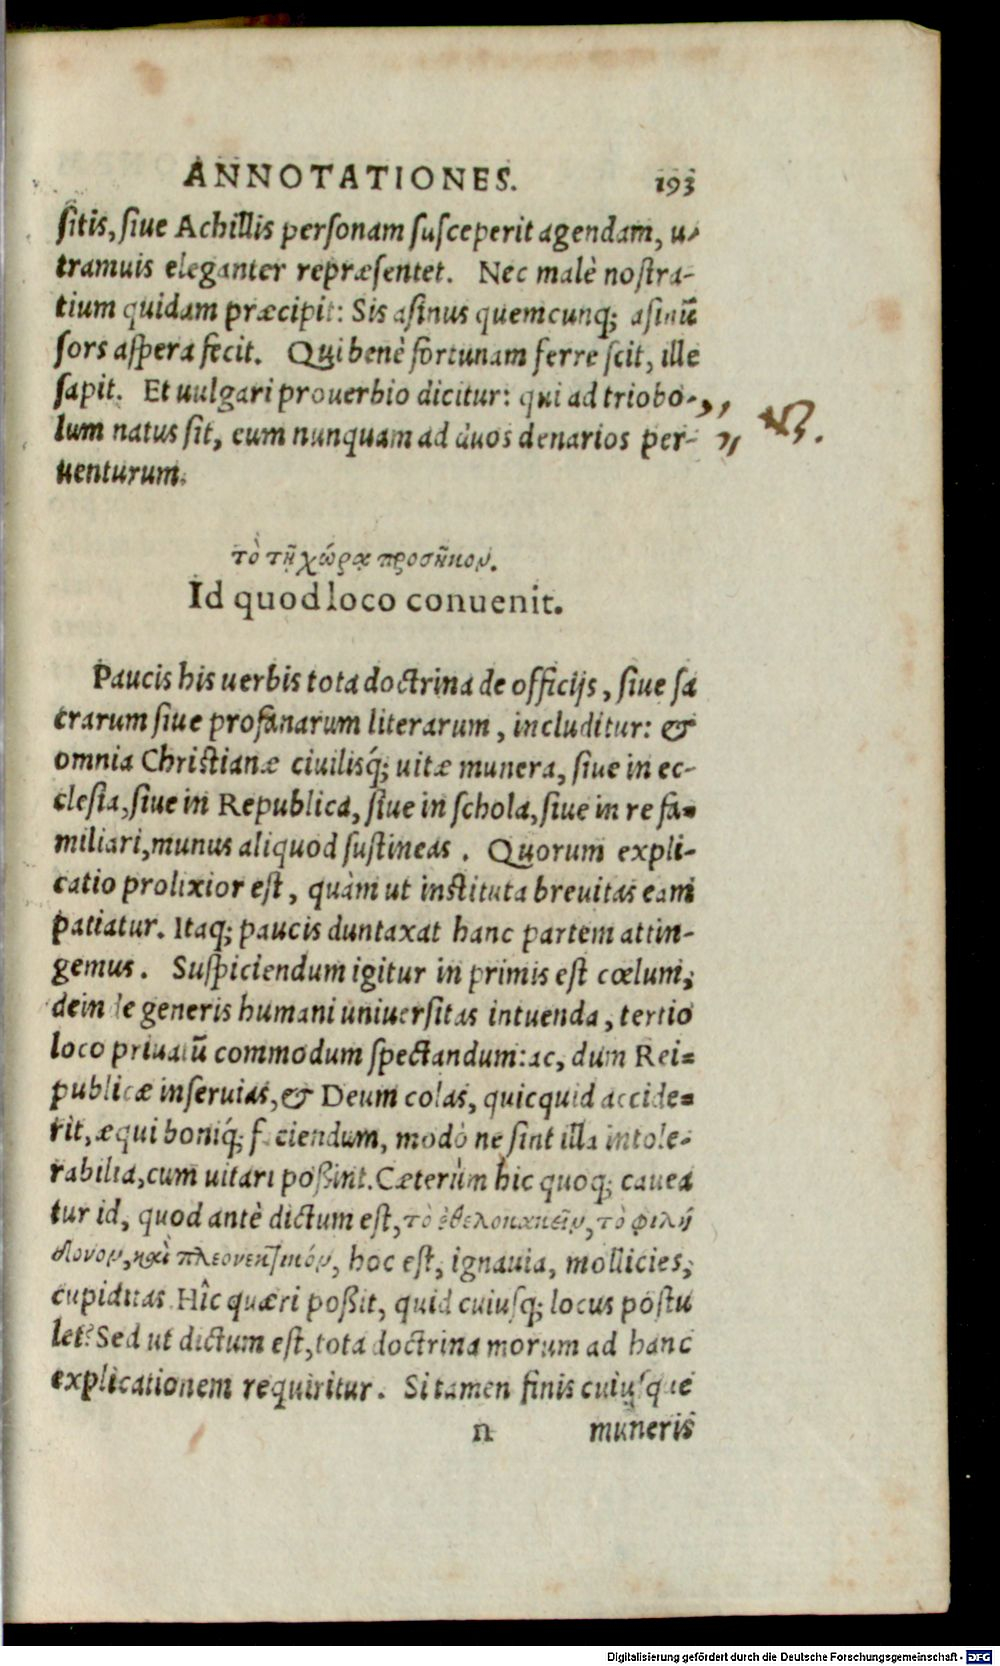 ANNOTATIONES. 193
sitis, siue Achillis personam susceperit agendam, u-
tramuis eleganter repræsentet. Nec malè nostra-
tium quidam præcipit: Sis asinus quemcunq; asinū
sors aspera fecit. Qui benè fortunam ferre scit, ille
sapit. Et uulgari prouerbio dicitur: qui ad triobo-
lum natus sit, eum nunquam ad duos denarios per-
uenturum.
τὸ τῇ χώρᾳ προσῆκον.
Id quod loco conuenit.
Paucis his uerbis tota doctrina de officijs, siue sa
crarum siue profanarum literarum, includitur: &
omnia Christianæ ciuilisq́; uitæ munera, siue in ec-
clesia, siue in Republica, siue in schola, siue in re fa-
miliari, munus aliquod sustineas. Quorum expli-
catio prolixior est, quàm ut instituta breuitas eam
patiatur. Itaq; paucis duntaxat hanc partem attin-
gemus. Suspiciendum igitur in primis est cœlum,
deinde generis humani uniuersitas intuenda, tertio
loco priuatū commodum spectandum: ac, dum Rei-
publicæ inseruias, & Deum colas, quicquid accide-
rit, æqui boniq́; faciendum, modò ne sint illa intole-
rabilia, cum uitari poßint. Cæterùm hic quoq; cauea
tur id, quod antè dictum est, τὸ ἐθελοκακεῖν, τὸ φιλή
δονον, καὶ πλεονεκτικόν, hoc est, ignauia, mollicies,
cupiditas. Hîc quæri poßit, quid cuiusq; locus postu
let? Sed ut dictum est, tota doctrina morum ad hanc
explicationem requiritur. Si tamen finis cuiusque
n muneris
Digitalisierung gefördert durch die Deutsche Forschungsgemeinschaft - DFG